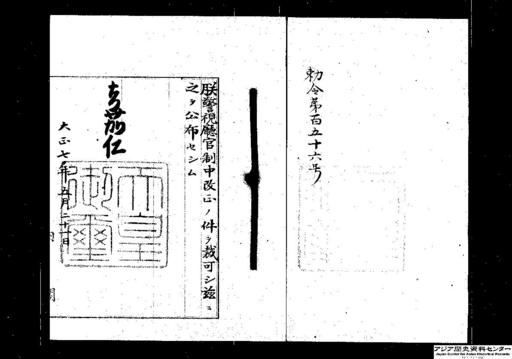 勅令第百五十六号
朕警視廳官制中改正ノ件ヲ裁可シ茲ニ
之ヲ公布セシム
嘉仁
天皇御璽
大正七年五月二十一日
内
閣
アジア歴史資料センター
Japan Center for Asian Historical Records